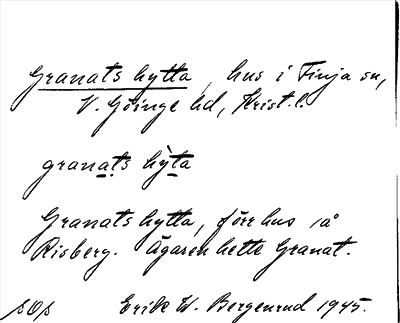 Granats hytta, hus i Finja sn,
V. Göinge hd, Krist. l.
granats hỳta
Granats hytta, förr hus på
Risberg. Ägaren hette Granat.
Erik W. Bergenrud 1945.